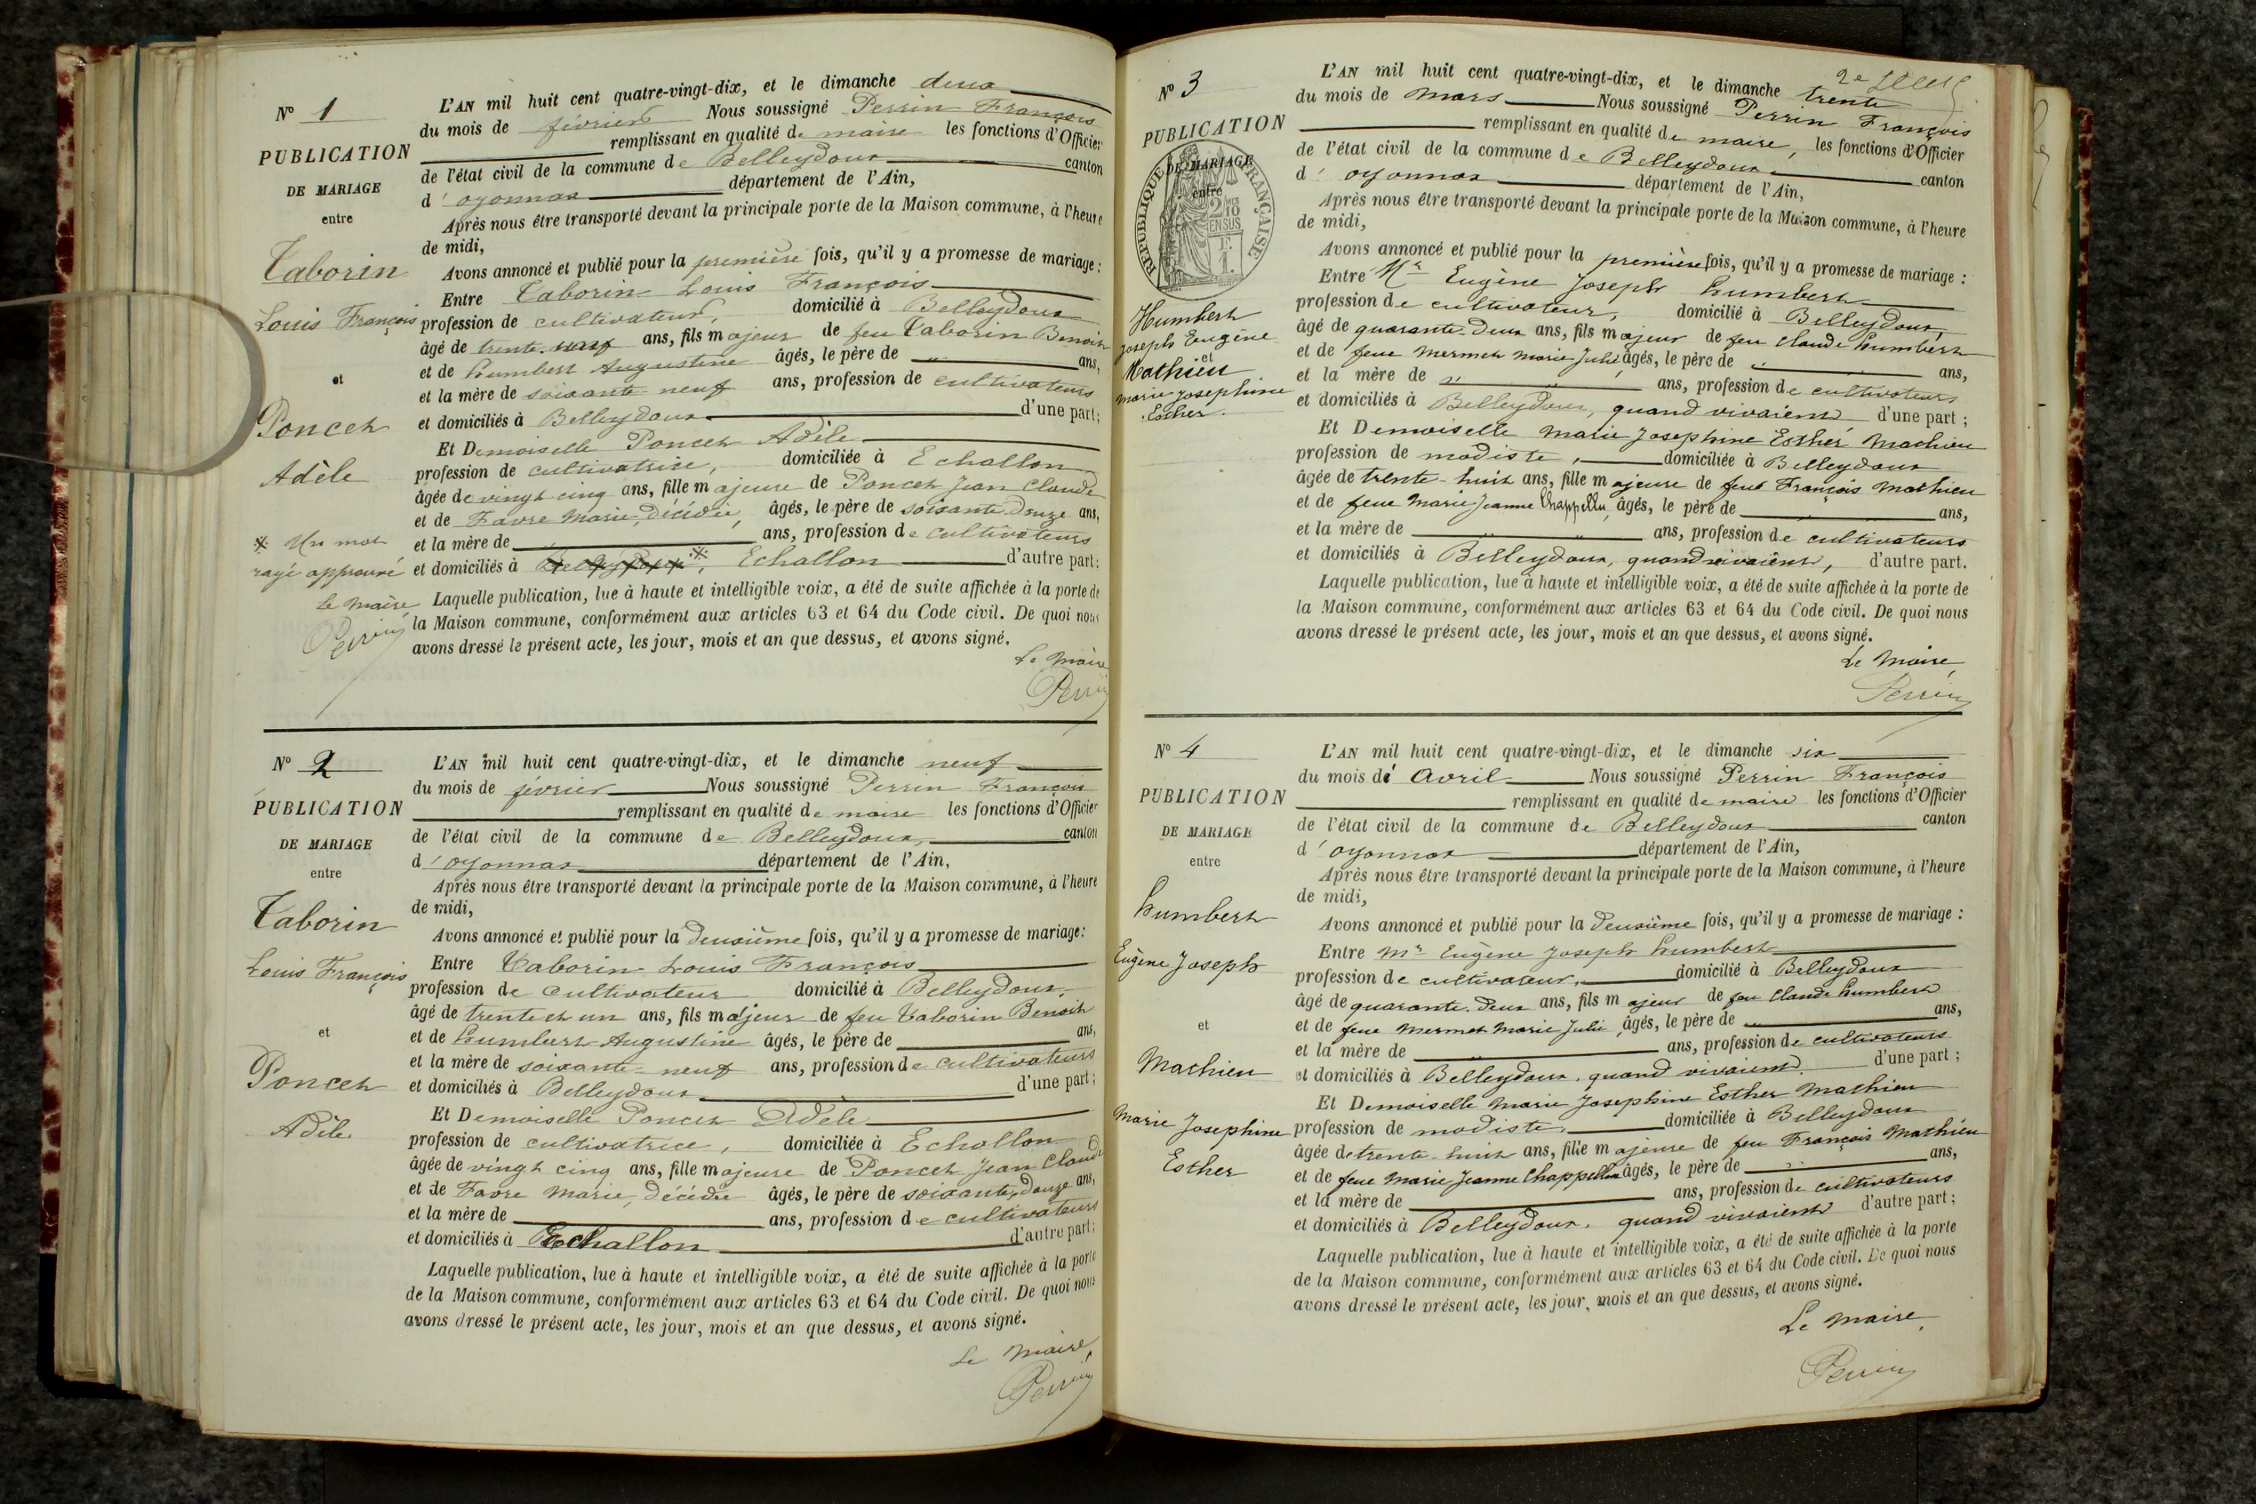 N° 1
PUBLICATION
DE MARIAGE
entre
Taborin
Louis François
et
Poncet
Adèle
* Un mot
rayé approuvé
Le Maire
Perrin
L'AN mil huit cent quatre-vingt-dix, et le dimanche deux
du mois de février Nous soussigné Perrin François
remplissant en qualité de maire les fonctions d'Officier
de l'état civil de la commune de Belleydoux canton
d'oyonnax département de l'Ain,
Après nous être transporté devant la principale porte de la Maison commune, à l'heure
de midi,
Avons annoncé et publié pour la première fois, qu'il y a promesse de mariage :
Entre Taborin Louis François
profession de cultivateur, domicilié à Belleydoux
âgé de trente ans, fils majeur de feu Taborin Benoit
et de humbert Augustine âgés, le père de ans,
et la mère de soixante neuf ans, profession de cultivateurs
et domiciliés à Belleydoux d'une part ;
Et Demoiselle Poncet Adèle
profession de cultivatrice, domiciliée à Echallon
âgée de vingt cinq ans, fille majeure de Poncet Jean Claude
et de Favre Marie, décédée, âgés, le père de soixante Douze ans,
et la mère de ans, profession de cultivateurs
et domiciliés à Belleydoux *, Echallon d'autre part :
Laquelle publication, lue à haute et intelligible voix, a été de suite affichée à la porte de
la Maison commune, conformément aux articles 63 et 64 du Code civil. De quoi nous
avons dressé le présent acte, les jour, mois et an que dessus, et avons signé.
Le Maire
Perrin
N° 2
PUBLICATION
DE MARIAGE
entre
Taborin
Louis François
et
Poncet
Adèle
L'AN mil huit cent quatre-vingt-dix, et le dimanche neuf
du mois de février Nous soussigné Perrin François
remplissant en qualité de maire les fonctions d'Officier
de l'état civil de la commune de Belleydoux, canton
d'oyonnax département de l'Ain,
Après nous être transporté devant la principale porte de la Maison commune, à l'heure
de midi,
Avons annoncé et publié pour la Deuxième fois, qu'il y a promesse de mariage :
Entre Taborin Louis François
profession de cultivateur domicilié à Belleydoux,
âgé de trente et un ans, fils majeur de feu Taborin Benoit
et de humbert Augustine âgés, le père de ans,
et la mère de soixante-neuf ans, profession de cultivateurs
et domiciliés à Belleydoux d'une part ;
Et Demoiselle Poncet Adèle
profession de cultivatrice, domiciliée à Echallon
âgée de vingt cinq ans, fille majeure de Poncet Jean Claude
et de Favre Marie, décédée âgés, le père de soixante, douze ans,
et la mère de ans, profession de cultivateurs
et domiciliés à Echallon d'autre part ;
Laquelle publication, lue à haute et intelligible voix, a été de suite affichée à la porte
de la Maison commune, conformément aux articles 63 et 64 du Code civil. De quoi nous
avons dressé le présent acte, les jour, mois et an que dessus, et avons signé.
Le Maire,
Perrin
N° 3
PUBLICATION
DE MARIAGE
entre
RÉPUBLIQUE FRANÇAISE
2/10 EN SUS
Humbert
Joseph Eugène
et
Mathieu
Marie Josephine
Esther
L'AN mil huit cent quatre-vingt-dix, et le dimanche trente
du mois de Mars Nous soussigné Perrin François
remplissant en qualité de maire, les fonctions d'Officier
de l'état civil de la commune de Belleydoux canton
d'oyonnax département de l'Ain,
Après nous être transporté devant la principale porte de la Maison commune, à l'heure
de midi,
Avons annoncé et publié pour la première fois, qu'il y a promesse de mariage :
Entre Mr Eugène Joseph humbert
profession de cultivateur, domicilié à Belleydoux,
âgé de quarante-Deux ans, fils majeur de feu Claude humbert
et de feue Mermet Marie Julie, âgés, le père de ans,
et la mère de ans, profession de cultivateurs
et domiciliés à Belleydoux, quand vivaient d'une part ;
Et Demoiselle Marie Josephine Esther Mathieu
profession de modiste, domiciliée à Belleydoux
âgée de trente-huit ans, fille majeure de feu François Mathieu
et de feue Marie Jeanne Chappellu, âgés, le père de ans,
et la mère de ans, profession de cultivateurs
et domiciliés à Belleydoux, quand vivaient, d'autre part.
Laquelle publication, lue à haute et intelligible voix, a été de suite affichée à la porte de
la Maison commune, conformément aux articles 63 et 64 du Code civil. De quoi nous
avons dressé le présent acte, les jour, mois et an que dessus, et avons signé.
Le Maire,
Perrin
N° 4
PUBLICATION
DE MARIAGE
entre
humbert
Eugène Joseph
et
Mathieu
Marie Josephine
Esther
L'AN mil huit cent quatre-vingt-dix, et le dimanche six
du mois d'Avril Nous soussigné Perrin François
remplissant en qualité de maire les fonctions d'Officier
de l'état civil de la commune de Belleydoux canton
d'oyonnax département de l'Ain,
Après nous être transporté devant la principale porte de la Maison commune, à l'heure
de midi,
Avons annoncé et publié pour la Deuxième fois, qu'il y a promesse de mariage :
Entre Mr Eugène Joseph humbert
profession de cultivateur, domicilié à Belleydoux
âgé de quarante-Deux ans, fils majeur de feu Claude humbert
et de feue Mermet Marie Julie, âgés, le père de ans,
et la mère de ans, profession de cultivateurs
et domiciliés à Belleydoux, quand vivaient. d'une part ;
Et Demoiselle Marie Josephine Esther Mathieu
profession de modiste, domiciliée à Belleydoux
âgée de trente-huit ans, fille majeure de feu François Mathieu
et de feue Marie Jeanne Chappellu âgés, le père de ans,
et la mère de ans, profession de cultivateurs
et domiciliés à Belleydoux, quand vivaient d'autre part ;
Laquelle publication, lue à haute et intelligible voix, a été de suite affichée à la porte
de la Maison commune, conformément aux articles 63 et 64 du Code civil. De quoi nous
avons dressé le présent acte, les jour, mois et an que dessus, et avons signé.
Le Maire,
Perrin